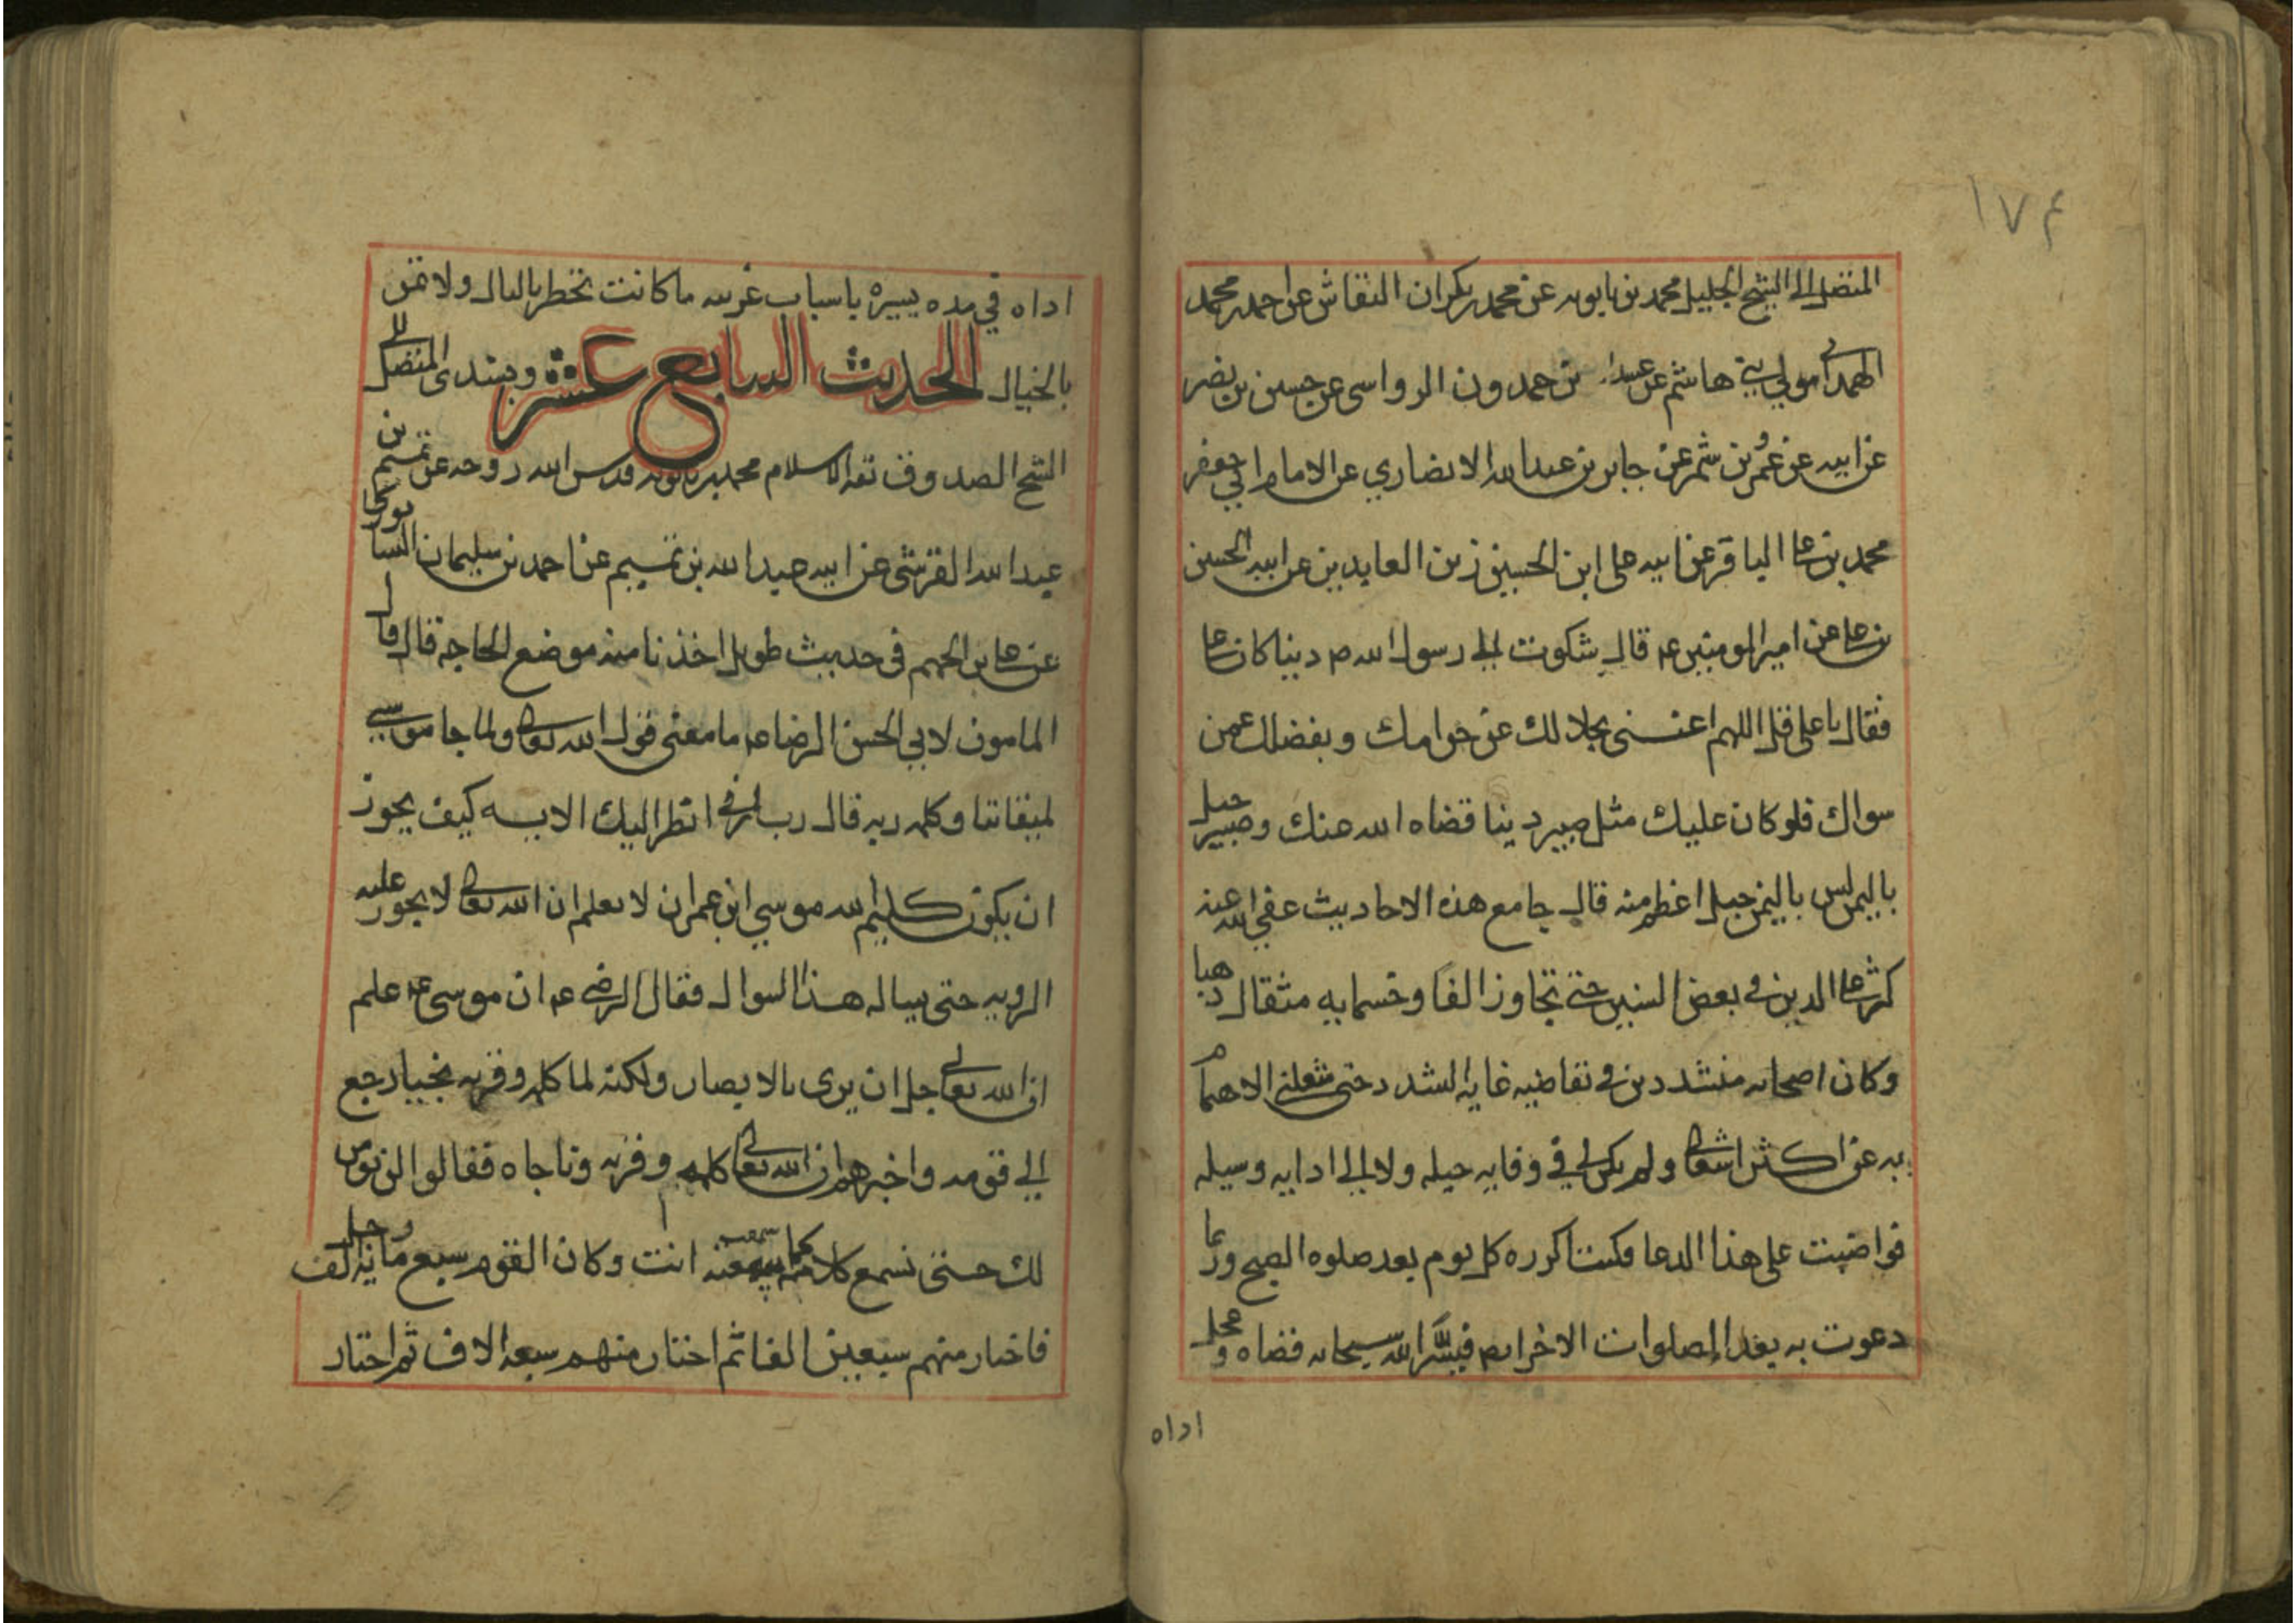 ١٧٤
المتصل الى الشيخ الجليل محمد بن بابويه عن محمد بن بكران النقاش عن احمد بن محمد
الهمداني مولى بني هاشم عن عبيد بن حمدون الرواسي عن حسين بن نصر
عن ابيه عن عمرو بن شمر عن جابر بن عبد الله الانصاري عن الامام ابي جعفر
محمد بن علي الباقر عن ابيه علي ابن الحسين زين العابدين عن ابيه الحسين
بن علي عن امير المومنين عه قال شكوت الى رسول الله ص دينا كان علي
فقال يا علي قل اللهم اغنني بحلالك عن حرامك وبفضلك عمن
سواك فلو كان عليك مثل صبير دينا قضاه الله عنك وصبير جبل
باليمن ليس باليمن جبل اعظم منه قال جامع هذه الاحاديث عفي الله عنه
كثر علي الدين في بعض السنين حتى تجاوز الفا وخسمايه مثقال ذهبا
وكان اصحابه متشددين في تقاضيه غايه التشدد حتى شغلني الاهتمام
به عن اكثر اشغالي ولم يكن لي في وفايه حيله ولا الى ادايه وسيله
فواضبت على هذا الدعا فكنت اكرره كل يوم بعد صلوه الصبح وربما
دعوت به بعد الصلوات الاخر ايضا فيسر الله سبحانه قضاه وعجل
اداه
اداه في مده يسيره باسباب غريبه ما كانت تخطر بالبال ولا تمر
بالخيال الحديث السابع عشر وبسندي المتصل الى
الشيخ الصدوق ثقه الاسلام محمد بن بابويه قدس الله روحه عن تميم بن
عبد الله القرشي عن ابيه عبد الله بن تميم عن احمد بن سليمان النسابوري
عن علي بن الجهم في حديث طويل اخذنا منه موضع الحاجه قال قال
المامون لابي الحسن الرضا عه ما معنى قول الله تعالى ولما جا موسى
لميقاتنا وكلمه ربه قال رب ارني انظر اليك الايه كيف يجوز
ان يكون كليم الله موسي ابن عمران لا يعلم ان الله تعالى لا يجوز عليه
الرويه حتى يساله هذا السوال فقال الرضي عه ان موسى عه علم
ان الله تعالى جل ان يرى بالابصار ولكنه لما كلمه وقربه نجيا رجع
الى قومه واخبرهم ان الله تعالى كلمه وقربه وناجاه فقالوا لن نومن
لك حتى نسمع كلامه كما سمعته انت وكان القوم سبع مايه الف رجل
فاختار منهم سبعين الفا ثم اختار منهم سبعه الاف ثم اختار